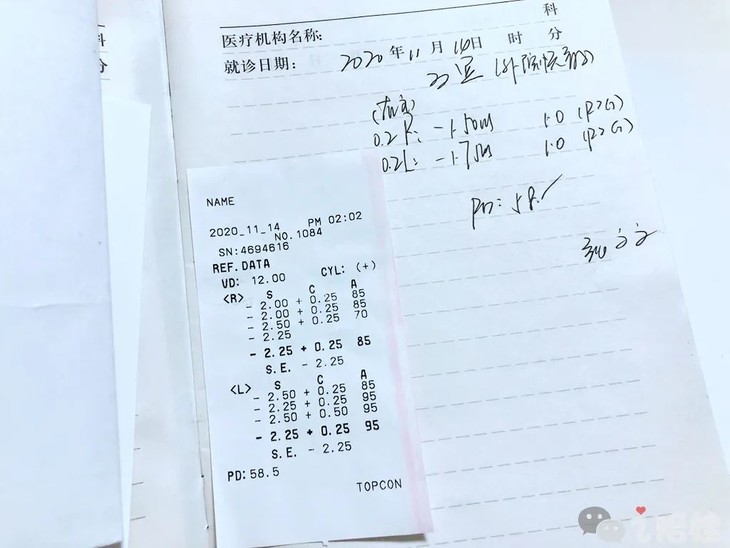 科
分
科
医疗机构名称:
就诊日期: 2020年11月14日 时 分
0.2R: -1.50DS 1.0 (R>G)
0.2L: -1.75DS 1.0 (R>G)
PD: 58
NAME
2020_11_14 PM 02:02
NO.1084
SN:4694616
REF.DATA
VD: 12.00 CYL: (+)
<R> S C A
- 2.00 + 0.25 85
- 2.00 + 0.25 85
- 2.50 + 0.25 70
- 2.25
- 2.25 + 0.25 85
S.E. - 2.25
<L> S C A
- 2.50 + 0.25 85
- 2.25 + 0.25 95
- 2.50 + 0.50 95
- 2.25 + 0.25 95
S.E. - 2.25
PD:58.5
TOPCON